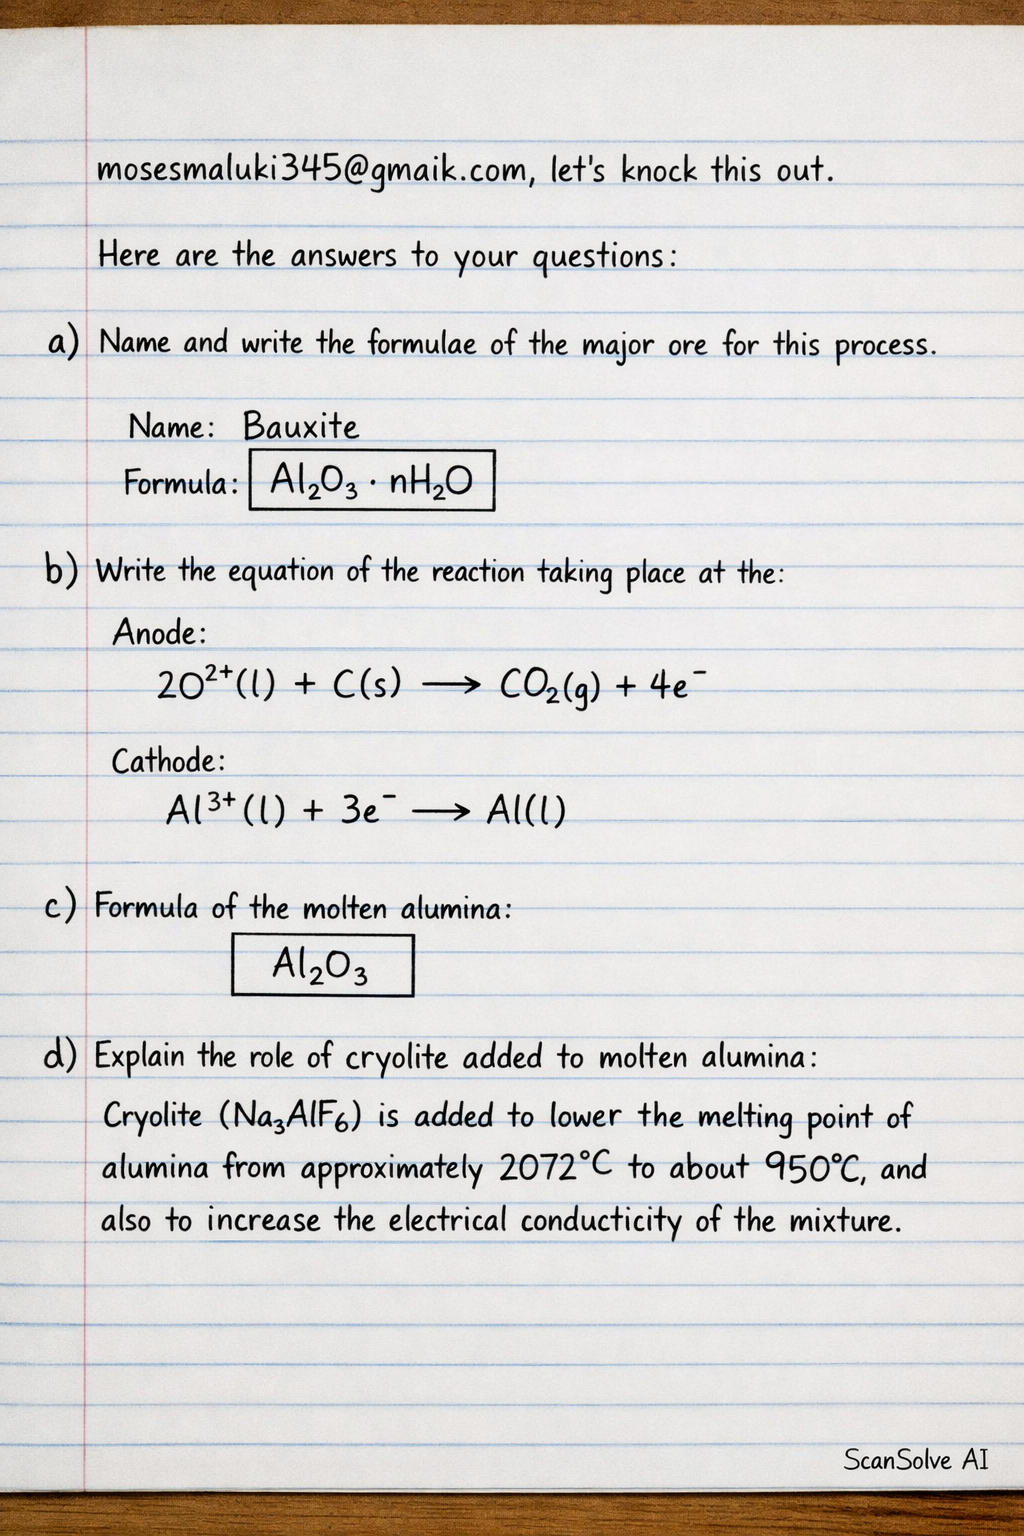 mosesmaluki345@gmaik.com, let's knock this out.
Here are the answers to your questions:
a) Name and write the formulae of the major ore for this process.
Name: Bauxite
Formula: Al₂O₃ · nH₂O
b) Write the equation of the reaction taking place at the:
Anode:
2O²⁺(l) + C(s) ⟶ CO₂(g) + 4e⁻
Cathode:
Al³⁺(l) + 3e⁻ ⟶ Al(l)
c) Formula of the molten alumina:
Al₂O₃
d) Explain the role of cryolite added to molten alumina:
Cryolite (Na₃AlF₆) is added to lower the melting point of
alumina from approximately 2072°C to about 950°C, and
also to increase the electrical conducticity of the mixture.
ScanSolve AI